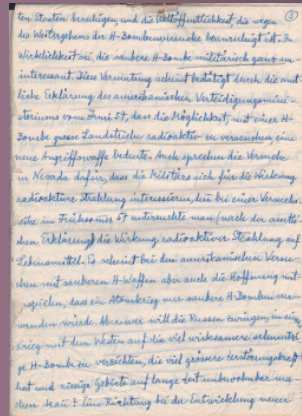 ③
ten Staaten beruhigen, und die Weltöffentlichkeit die wegen
des Weitergehens der H-Bombenversuche beunruhigt ist. In
Wirklichkeit sei die saubere H-Bombe militärisch ganz un-
interessant. Diese Vermutung scheint bestätigt durch die amt
liche Erklärung des amerikanischen Verteidigungsminis-
teriums vom Juni 57, dass die Möglichkeit, mit einer H-
Bombe grosse Landstriche radioaktiv zu verseuchen eine
neue Angriffswaffe bedeute. Auch sprechen die Versuche
in Nevada dafür, dass die Militärs sich für die Wirkung
radioaktiver Strahlung interessieren, den bei einer Versuchs
reihe im Frühsommer 57 untersuchte man (nach der amtli-
chen Erklärung) die Wirkung radioaktiver Strahlung auf
Lebensmittel. Es scheint bei den amerikanischen Versu-
chen mit sauberen H-Waffen aber auch die Hoffnung mit-
zuspielen, dass ein Atomkrieg nur saubere H-Bomben ver-
wenden würde. Aber wer will die Russen zwingen, in einem
Krieg mit dem Westen auf die viel wirksamere schmutzi
ge H-Bombe zu verzichten, die viel grössere Zerstörungskraft
hat und riesige Gebiete auf lange Zeit unbewohnbar ma-
chen kann? Eine Richtung bei der Entwicklung neuer